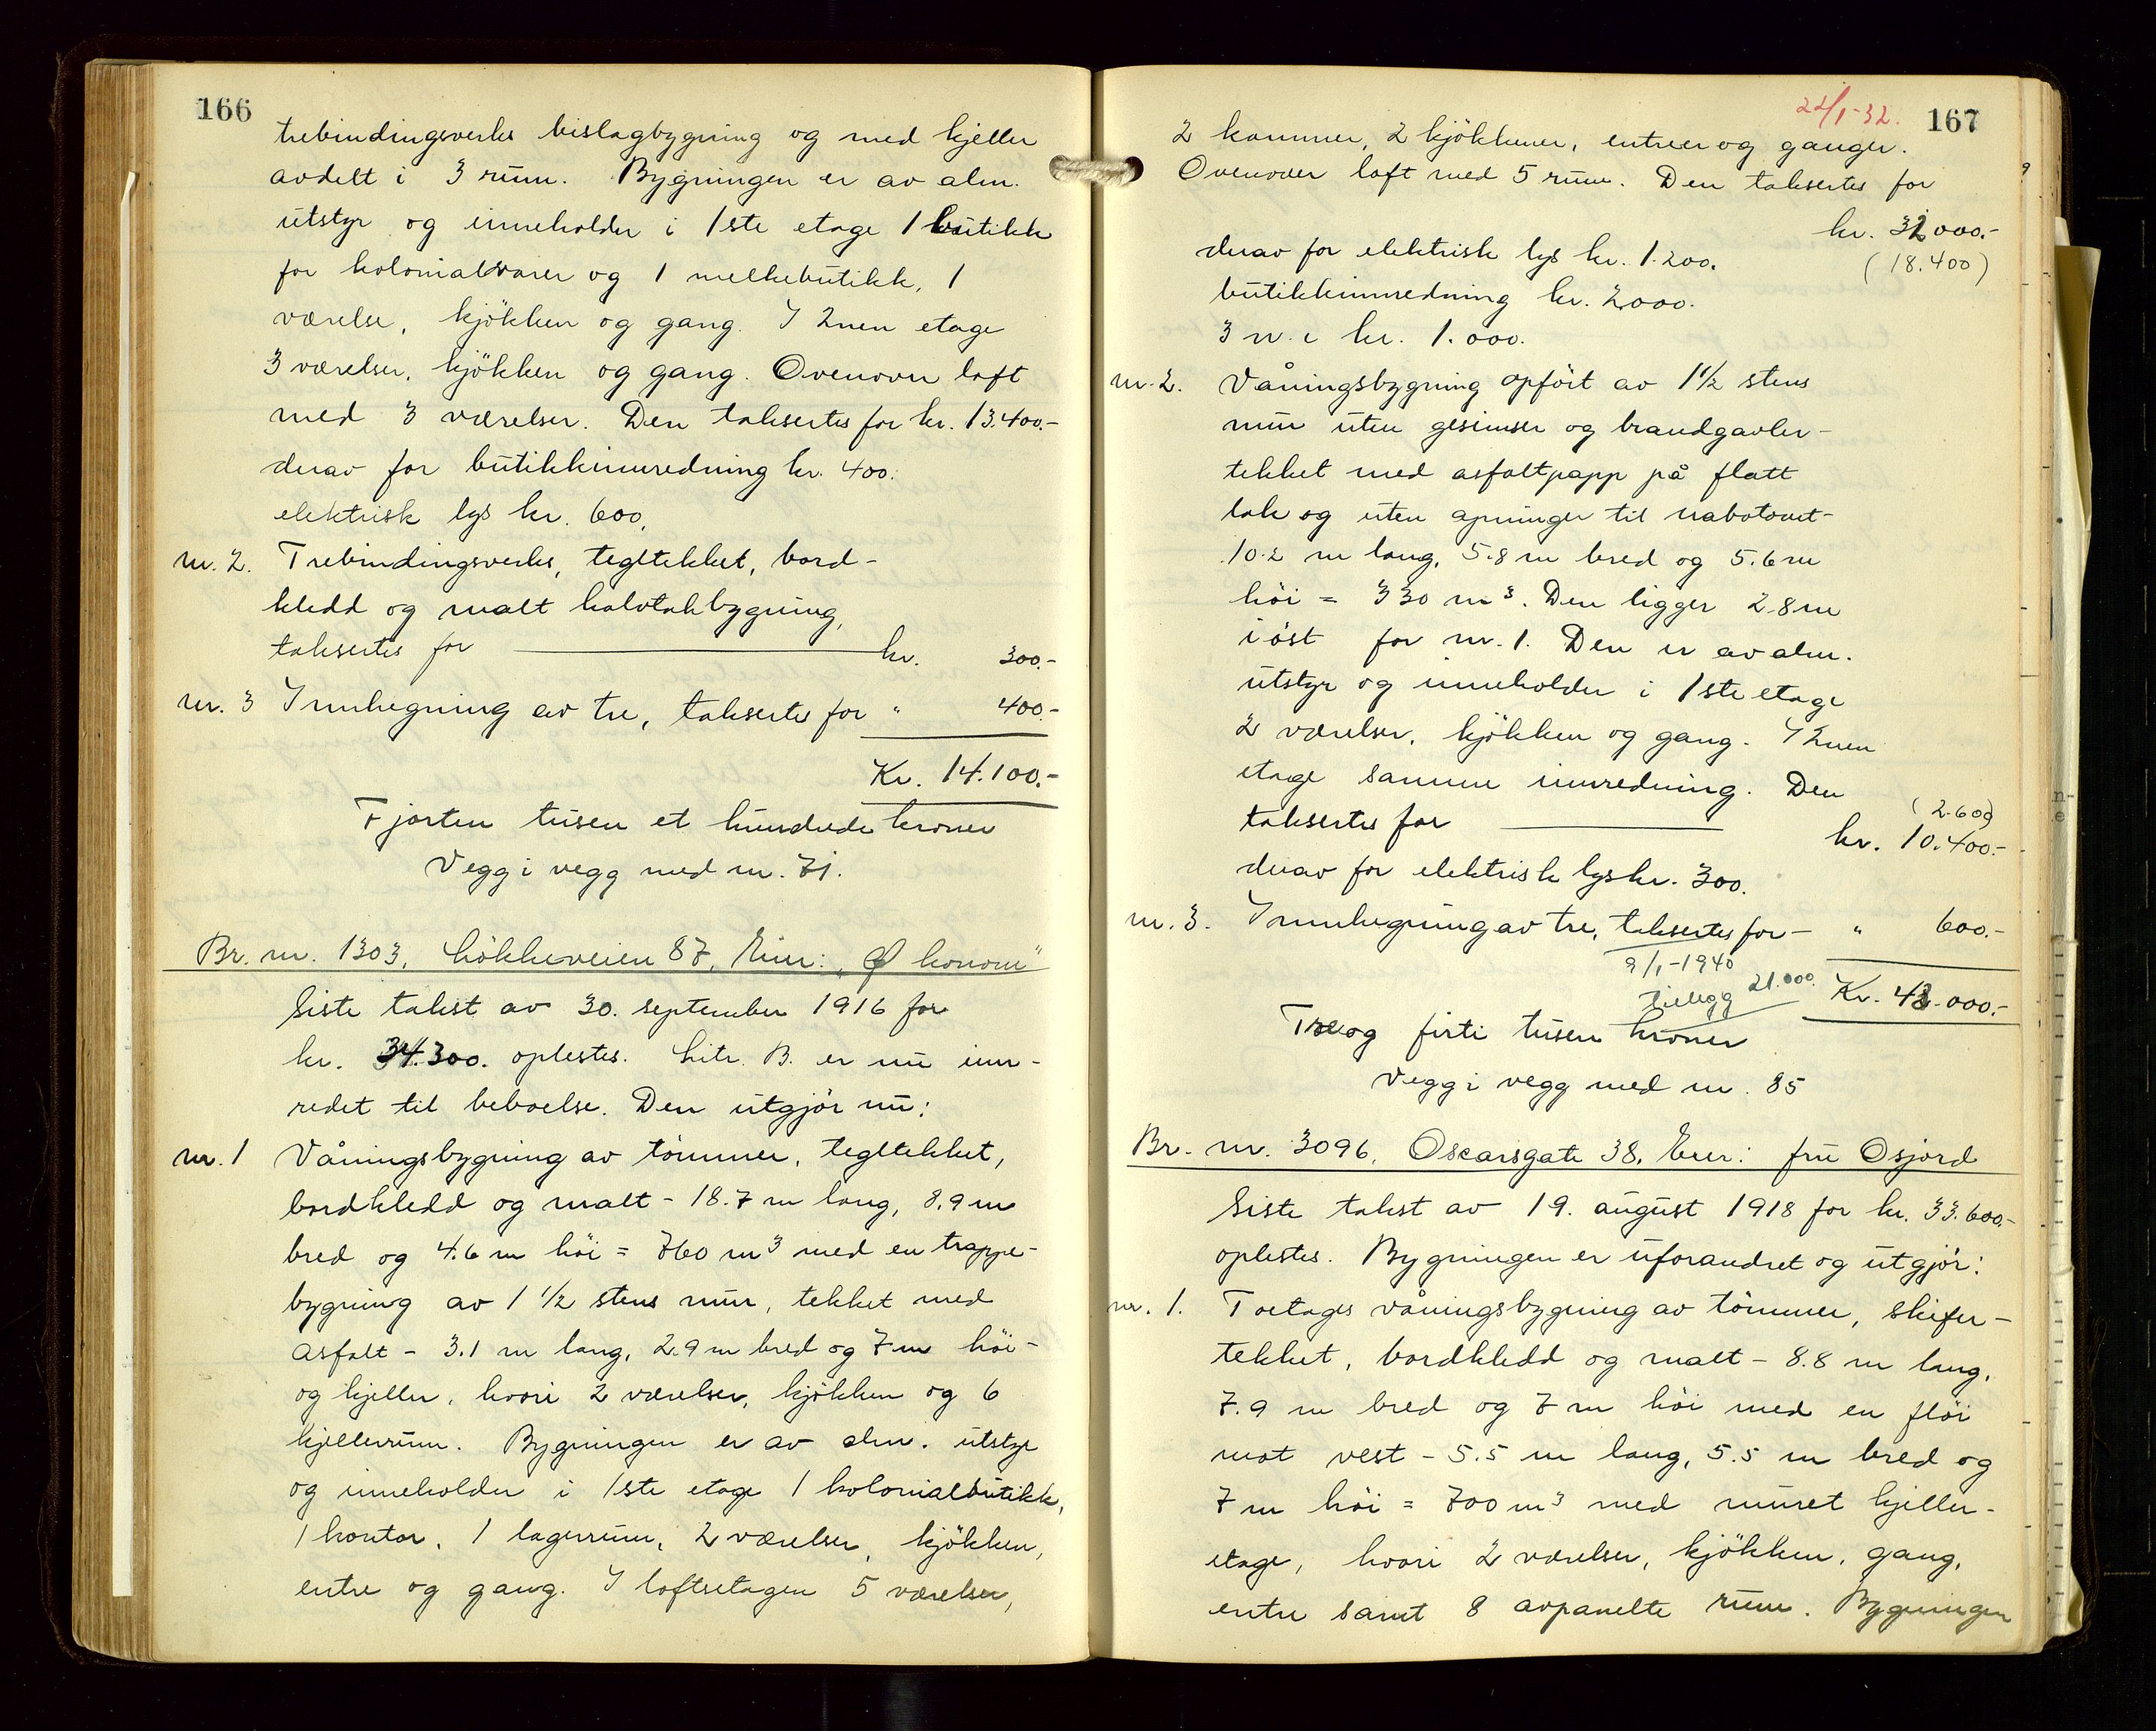 166
trebindingsverks bislagbygning og med kjeller
avdelt i 3 rum. Bygningen er av alm.
utstyr og inneholder i 1ste etage 1 butikk
for kolonialvarer og 1 melkebutikk, 1
værelse, kjökken og gang. I 2nen etage
3 værelser, kjökken og gang. Ovenover loft
med 3 værelser. Den taksertes for kr. 13.400.-
derav for butikkinnredning kr. 400.
elektrisk lys kr. 600.
nr. 2. Trebindingsverks, tegltekket, bord-
kledd og malt halvtakbygning,
taksertes for kr. 300.-
nr. 3 Innhegning av tre, taksertes for " 400.-
Kr. 14.100.-
Fjorten tusen et hundrede kroner
Vegg i vegg med nr. 71.
Br. nr. 1303. Lökkeveien 87, Eier: "Ø konom"
Siste takst av 30. september 1916 for
kr. 34.300. oplestes. Litr. B. er nu inn-
redet til beboelse. Den utgjör nu:
nr. 1 Våningsbygning av tömmer, tegltekket,
bordkledd og malt - 18.7 m lang, 8.9 m
bred og 4.6 m höi = 760 m³ med en trappe-
bygning av 1 1/2 stens mur, tekket med
asfalt - 3.1 m lang, 2.9 m bred og 7 m höi -
og kjeller, hvori 2 værelser, kjökken og 6
kjellerrum. Bygningen er av alm. utstyr
og inneholder i 1ste etage 1 kolonialbutikk,
1 kontor, 1 lagerrum, 2 værelser, kjökken,
entre og gang. I loftsetagen 5 værelser,
22/1-32. 167
2 kammer, 2 kjökkener, entreer og ganger.
Ovenover loft med 5 rum. Den taksertes for
kr. 32000.-
derav for elektrisk lys kr. 1.200. (18.400)
butikkinnredning kr. 2000.
3 w.c kr. 1.000.
nr. 2. Våningsbygning opfört av 1 1/2 stens
mur uten gesimser og brandgavler -
tekket med asfaltpapp på flatt
tak og uten apninger til nabotomt -
10.2 m lang, 5.8 m bred og 5.6 m
höi = 330 m³. Den ligger 2.8 m
i öst for nr. 1. Den er av alm.
utstyr og inneholder i 1ste etage
2 værelser, kjökken og gang. I 2nen
etage samme innredning. Den
(2.600)
taksertes for kr. 10.400.-
derav for elektrisk lys kr. 300.
nr. 3. Innhegning av tre, taksertes for - " 600.-
9/1-1940
tillegg 21.000. Kr. 43.000.-
Tre og firti tusen kroner
Vegg i vegg med nr. 85
Br. nr. 3096. Oscarsgate 38. Eier: fru Osjord
Siste takst av 19. august 1918 for kr. 33.600.-
oplestes. Bygningen er uforandret og utgjör:
nr. 1. Toetages våningsbygning av tömmer, skifer-
tekket, bordkledd og malt - 8.8 m lang,
7.9 m bred og 7 m höi med en flöi
mot vest - 5.5 m lang, 5.5 m bred og
7 m höi = 700 m³ med muret kjeller-
etage, hvori 2 værelser, kjökken, gang,
entre samt 8 avpanelte rum. Bygningen